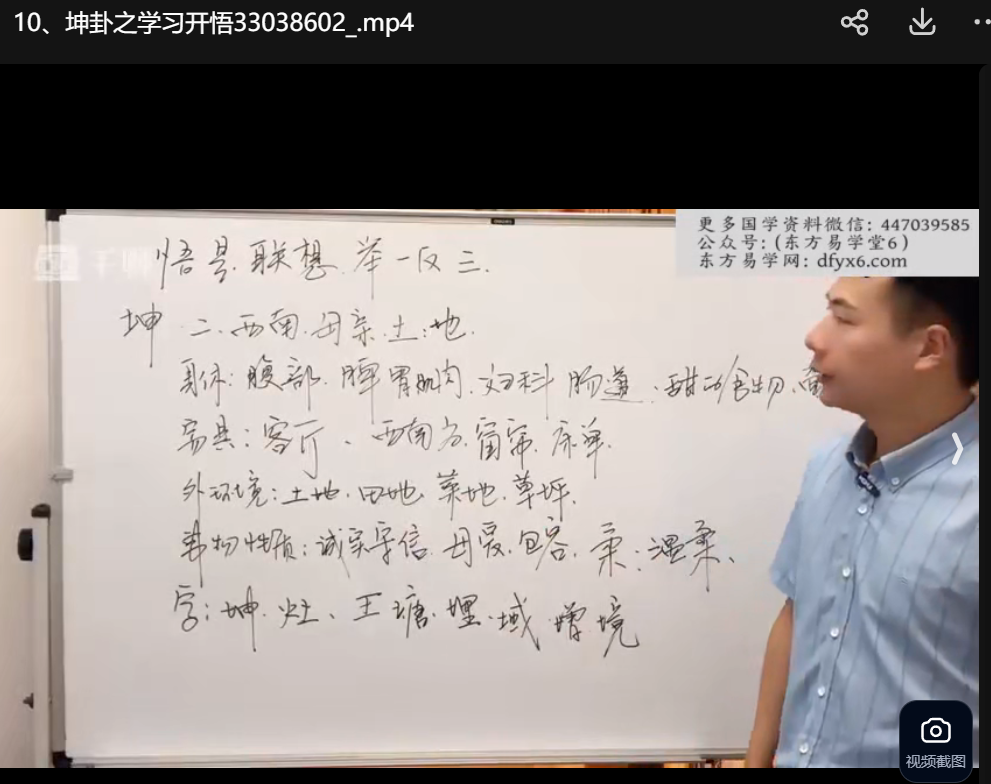 10、坤卦之学习开悟33038602_.mp4
更多国学资料微信：447039585
公众号：(东方易学堂6)
东方易学网：dfyx6.com
千聊
悟是.联想.举一反三.
坤 二.西南.母亲.土:地.
身体:腹部.脾胃肌肉.妇科 肠道.甜的食物.
家具:客厅、西南方.窗帘.床单.
外环境:土地.田地.菜地.草坪.
事物性质:诚实孚信.母爱.包容.柔:温柔、
字:坤.灶、王塘.埋.域.增.境
视频截图